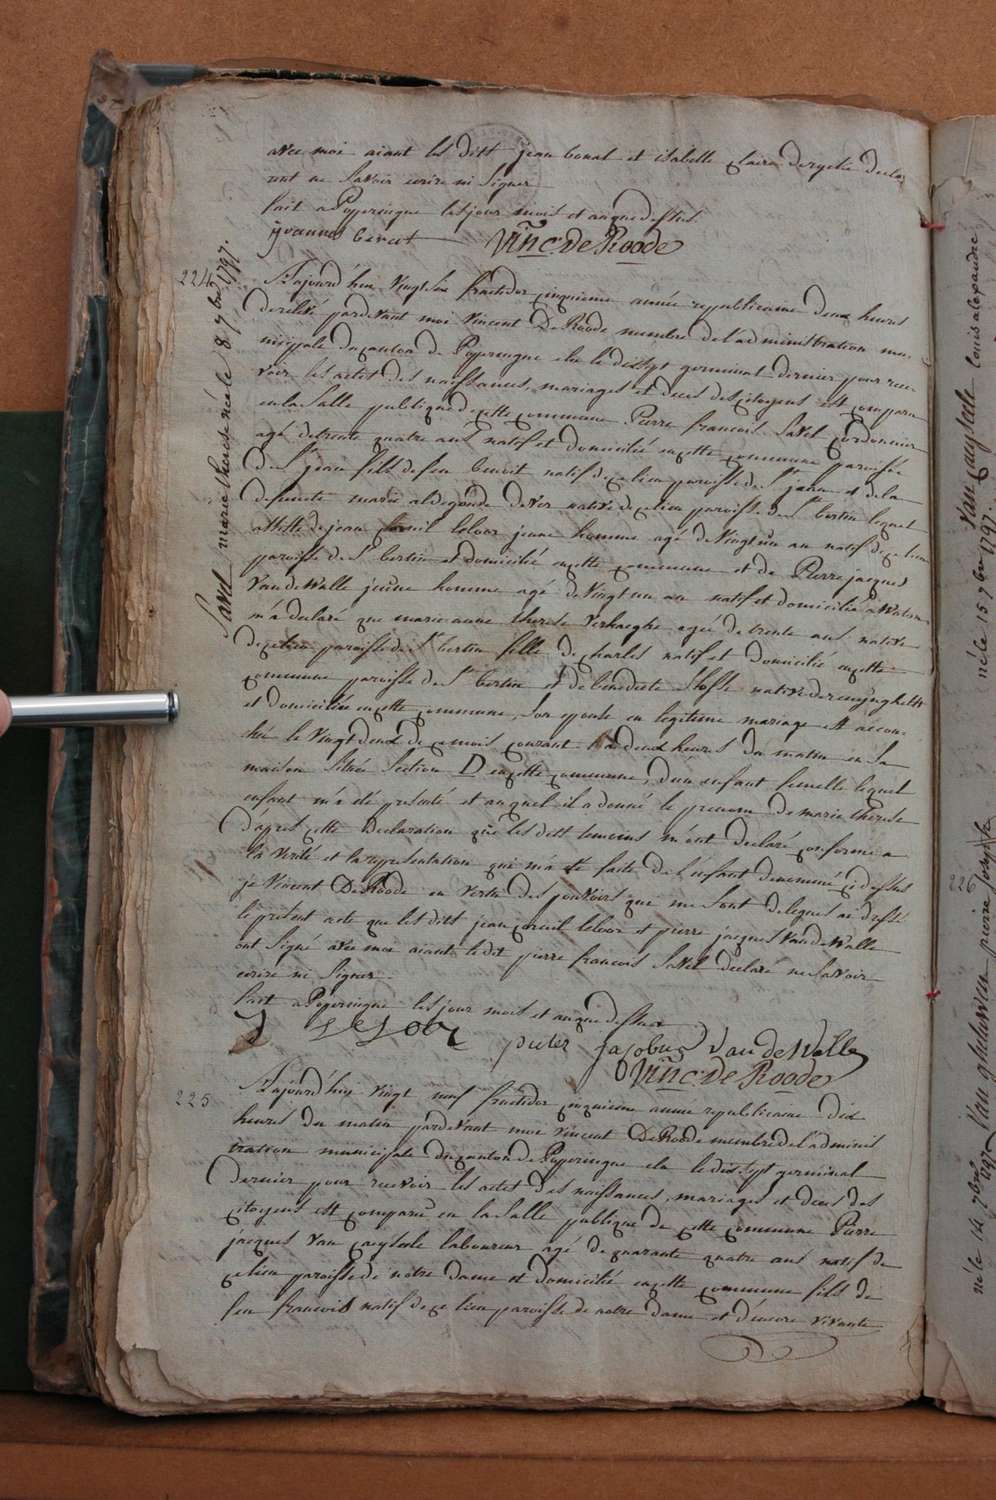 avec moi aiant les ditt jean bonal et isabelle Claire Derycke decla
rent ne savoir ecrire ni signer
fait a Poperingue les jour mois et an que dessus
jvannes VincDeRoode
224
Savel marie therese née le 8 7bre 1797.
Aujourd'huy vingt six fructidor cinquieme année republicaine deux heures
de relevé pardevant moi Vincent DeRoode membre de l'administration mu-
nicipale du canton de Poperingue elu le dixsept germinal dernier pour rece-
voir les actes des naissances, mariages et deces des citoyens est comparu
en la salle publique de cette commune Pierre francois Savel Cordonnier
agé de trente quatre ans natif et domicilié en cette commune paroisse
de St jean fils de feu benoit natif de ce lieu paroisse de St jean et de la
defunte marie aldegonde natve de ce lieu paroisse de St bertin lequel
assisté de jean Corneil lelooz jeune homme agé de vingt un an natif de ce lieu
paroisse de St bertin et domicilié en cette commune et de Pierre jacques
Van de Walle jeune homme agé de vingt un an natif et domicilié a Watou
m'a declaré que marie anne therese Verhaeghe agée de trente ans native
de ce lieu paroisse de St bertin fille de charles natif et domicilié en cette
commune paroisse de St bertin et de benedicte native de reninghelst
et domiciliée en cette commune, son epouse en legitime mariage est accou-
chée le vingt deux de ce mois courant a deux heures du matin en sa
maison située section D en cette commune, d'un enfant femelle lequel
enfant m'a eté presenté et auquel il a donné le prenom de marie therese
d'apres cette declaration que les ditt temoins m'ont declaré conforme a
la verité et la representation qui m'a eté faite de l'enfant denommé ci dessus
je Vincent DeRoode en vertu des pouvoirs qui me sont delegués ai dressé
le present acte que les ditt jean Corneil lelooz et pierre jacques Van de Walle
ont signé avec moi aiant le dit pierre francois Savel declaré ne savoir
ecrire ni signer.
fait a Poperingue les jour mois et an que dessus
J pieter jacobus Van de Walle
VincDeRoode
225
Aujourd'huy vingt neuf fructidor cinquieme année republicaine dix
heures du matin pardevant moi vincent DeRoode membre de l'adminis
tration municipale du canton de Poperingue elu le dixsept germinal
dernier pour recevoir les actes des naissances, mariages et deces des
citoyens est comparu en la salle publique de cette commune Pierre
jacques Van Cayseele laboureur agé de quarante quatre ans natif de
ce lieu paroisse de nôtre dame et domicilié en cette commune fils de
feu francois natif de ce lieu paroisse de notre dame et d'encore vivante
Van Cayseele louis alexandre
né le 15 7bre 1797.
226
Van ghelüwen pierre joseph
né le 14 7bre 1797